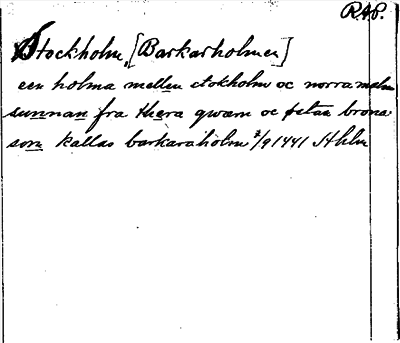 RAP.
Stockholm, [Barkarholmen]
een holma mellen stokholm oc norramalm
sunnan fra thera qwarn oc stan brona
som kallas barkaraholm 2/9 1441 Sthlm